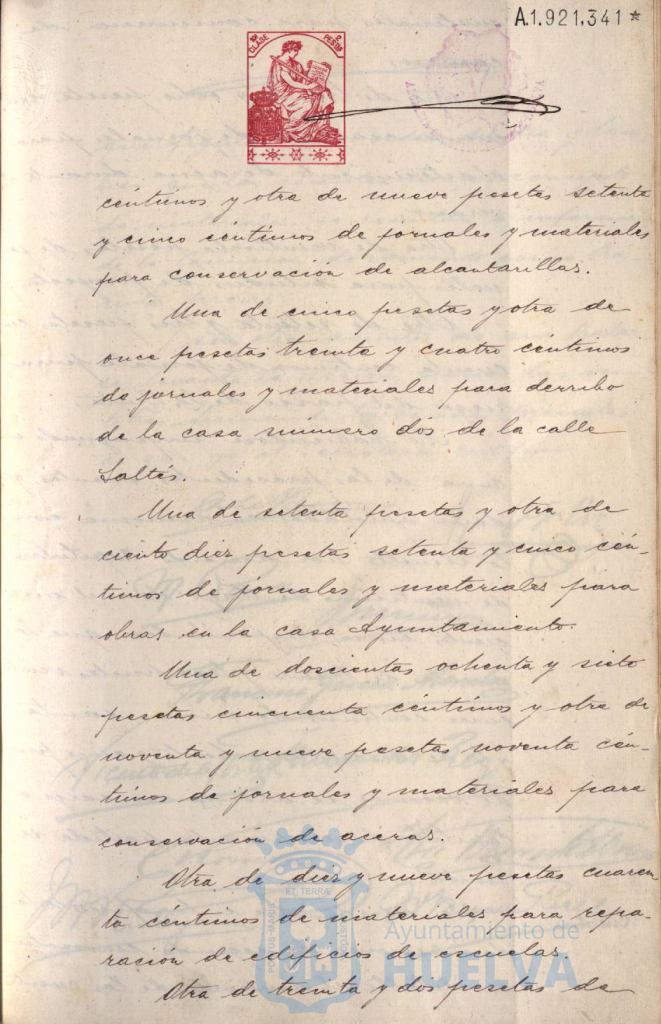 A.1.921.341 *
8ª CLASE 2 PESTAS
céntimos y otra de nueve pesetas setenta
y cinco céntimos de jornales y materiales
para conservación de alcantarillas.
Una de cinco pesetas y otra de
once pesetas treinta y cuatro céntimos
de jornales y materiales para derribo
de la casa número dos de la calle
Saltés.
Una de setenta pesetas y otra de
ciento diez pesetas setenta y cinco cén-
timos de jornales y materiales para
obras en la casa Ayuntamiento.
Una de doscientas ochenta y siete
pesetas cincuenta céntimos y otra de
noventa y nueve pesetas noventa cén-
timos de jornales y materiales para
conservación de aceras.
Otra de diez y nueve pesetas cuaren
ta céntimos de materiales para repa-
ración de edificios de escuelas.
Otra de treinta y dos pesetas de
PORTUS MARIS
ET TERRE
Ayuntamiento de
HUELVA